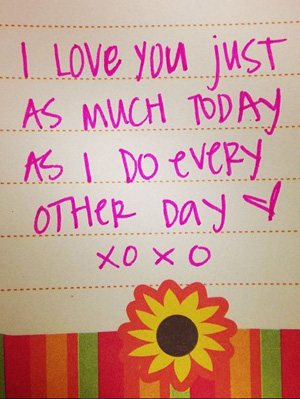 I LOVE YOU JUST
AS MUCH TODAY
AS I DO EVERY
OTHER DAY ♥
XOXO